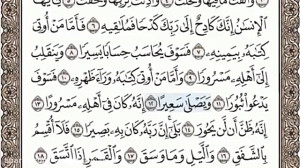 وَأَلْقَتْ مَا فِيهَا وَتَخَلَّتْ ٤ وَأَذِنَتْ لِرَبِّهَا وَحُقَّتْ
ٱلْإِنسَٰنُ إِنَّكَ كَادِحٌ إِلَىٰ رَبِّكَ كَدْحًا فَمُلَٰقِيهِ ٦ فَأَمَّا مَنْ أُوتِىَ
كِتَٰبَهُۥ بِيَمِينِهِۦ ٧ فَسَوْفَ يُحَاسَبُ حِسَابًا يَسِيرًا ٨ وَيَنقَلِبُ
إِلَىٰٓ أَهْلِهِۦ مَسْرُورًا ٩ وَأَمَّا مَنْ أُوتِىَ كِتَٰبَهُۥ وَرَآءَ ظَهْرِهِۦ ١٠ فَسَوْفَ
يَدْعُوا۟ ثُبُورًا ١١ وَيَصْلَىٰ سَعِيرًا ١٢ إِنَّهُۥ كَانَ فِىٓ أَهْلِهِۦ مَسْرُورًا ١٣
إِنَّهُۥ ظَنَّ أَن لَّن يَحُورَ ١٤ بَلَىٰٓ إِنَّ رَبَّهُۥ كَانَ بِهِۦ بَصِيرًا ١٥ فَلَآ أُقْسِمُ
بِٱلشَّفَقِ ١٦ وَٱلَّيْلِ وَمَا وَسَقَ ١٧ وَٱلْقَمَرِ إِذَا ٱتَّسَقَ ١٨